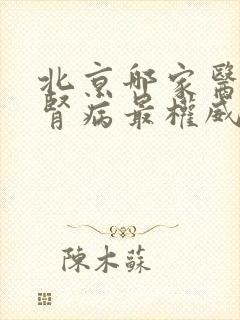 北京邮家醫
腎病最權威
陳木蘇